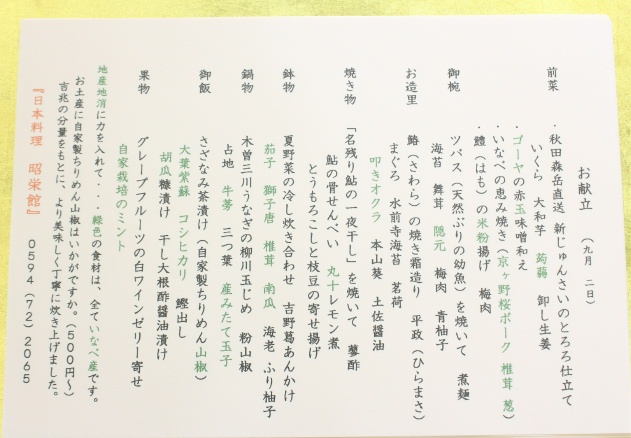 お献立 （九月 二日）
前菜 ・秋田森岳直送 新じゅんさいのとろろ仕立て
いくら 大和芋 蒟蒻 卸し生姜
・ゴーヤの赤玉味噌和え
・いなべの恵み焼き（京ヶ野桜ポーク 椎茸 葱）
・鱧（はも）の米粉揚げ 梅肉
御椀 ツバス（天然ぶりの幼魚）を焼いて 煮麺
海苔 舞茸 隠元 梅肉 青柚子
お造里 鰆（さわら）の焼き霜造り 平政（ひらまさ）
まぐろ 水前寺海苔 茗荷
叩きオクラ 本山葵 土佐醤油
焼き物 「名残り鮎の一夜干し」を焼いて 蓼酢
鮎の骨せんべい 丸十レモン煮
とうもろこしと枝豆の寄せ揚げ
鉢物 夏野菜の冷し炊き合わせ 吉野葛あんかけ
茄子 獅子唐 椎茸 南瓜 海老 ふり柚子
鍋物 木曽三川うなぎの柳川玉じめ 粉山椒
占地 牛蒡 三つ葉 産みたて玉子
御飯 さざなみ茶漬け（自家製ちりめん山椒）
大葉紫蘇 コシヒカリ 鰹出し
胡瓜糠漬け 干し大根酢醤油漬け
果物 グレープフルーツの白ワインゼリー寄せ
自家栽培のミント
地産地消に力を入れて・・・緑色の食材は、全ていなべ産です。
お土産に自家製ちりめん山椒はいかがですか。（５００円〜）
吉兆の分量をもとに、より美味しく丁寧に炊き上げました。
『日本料理 昭栄館』 ０５９４（７２）２０６５